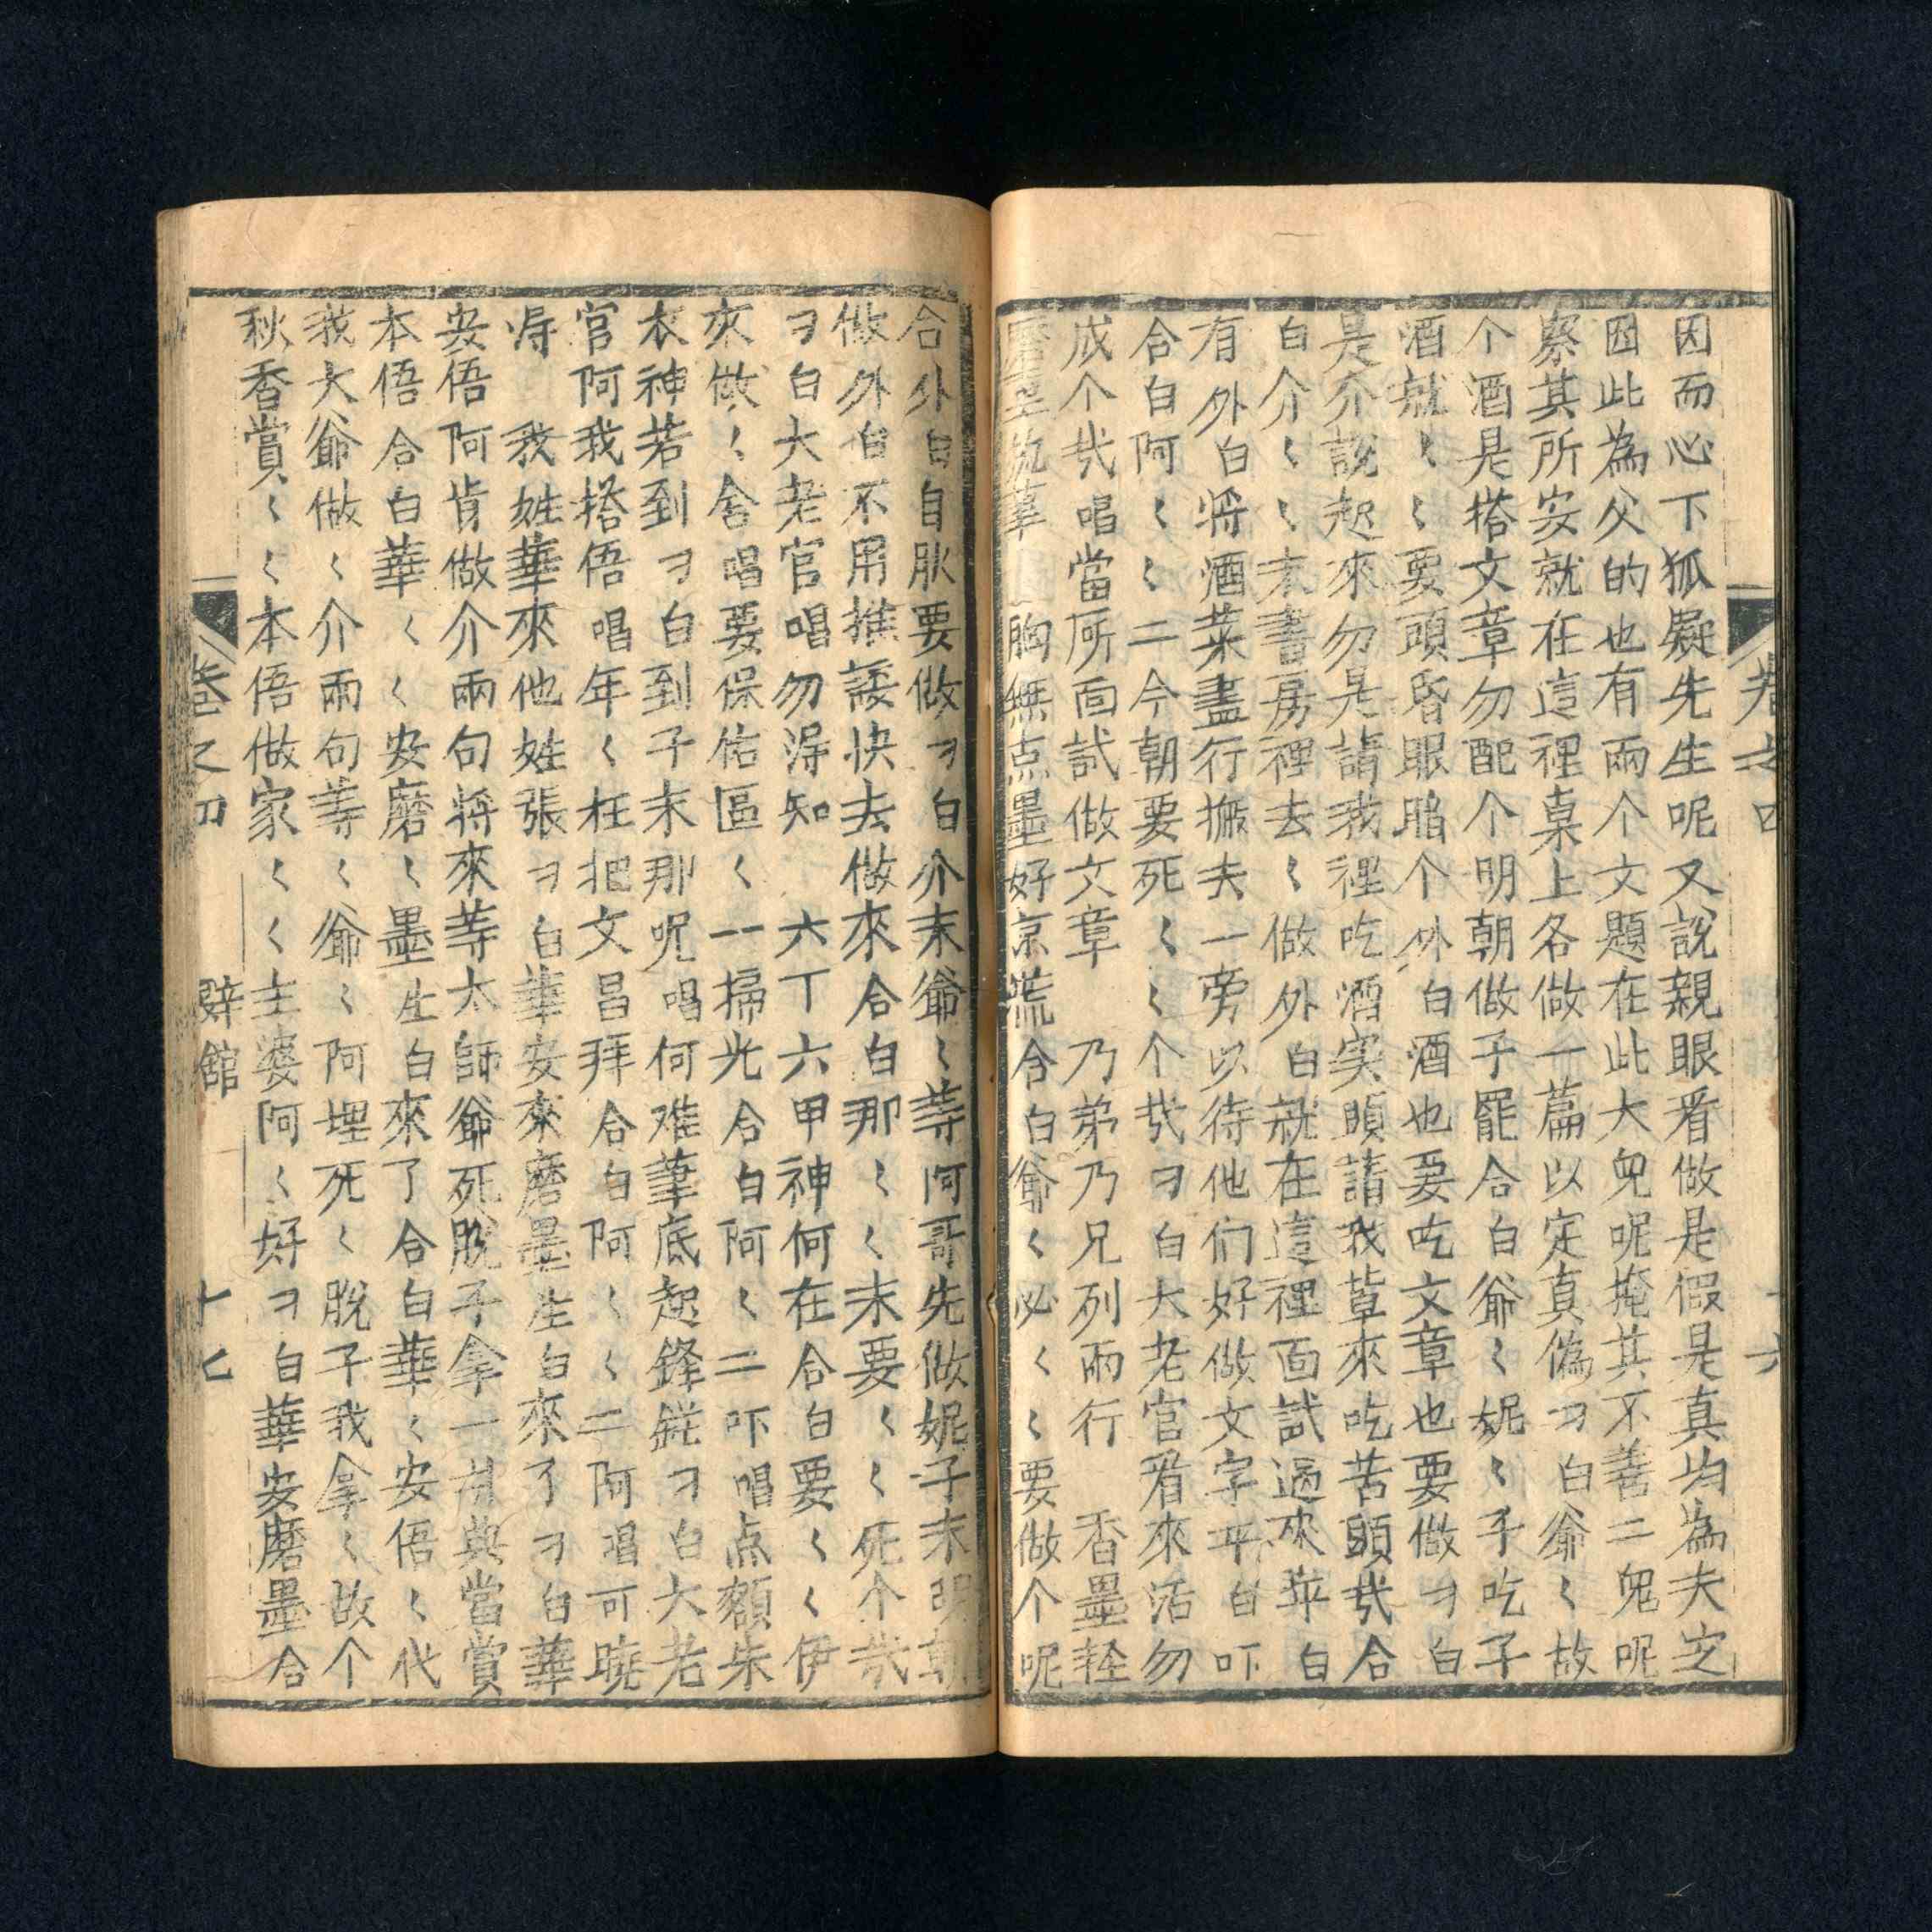 卷之四
十六
因而心下狐疑先生呢又說親眼看做是假是真均為夫之
因此為父的也有兩个文題在此大兒呢掩其不善二兒呢
察其所安就在這裡桌上各做一篇以定真偽刁白爺〻故
个酒是搭文章勿配个明朝做子罷合白爺〻妮〻子吃子
酒就〻〻要頭昏眼暗个外白酒也要吃文章也要做刁白
是介說起來勿是請我裡吃酒寔頭請我裡來吃苦頭哉合
白介〻〻末書房裡去〻做外白就在這裡面試過來苹白
有外白將酒菜盡行搬去一旁以待他们好做文字平白吓
合白阿〻〻二今朝要死〻〻个哉刁白大老官看來活勿
成个哉唱當所面試做文章　乃弟乃兄列兩行　香墨輕
磨墨筑葦　胸無点墨好京荒合白爺〻必〻〻要做个呢
合外白自肰要做刁白介末爺〻等阿哥先做妮子末明朝
做外白不用推諉快去做來合白那〻〻末要〻〻死个哉
刁白大老官唱勿淂知　六丁六甲神何在合白要〻〻伊
來做〻舍唱要保佑區〻一掃光合白阿〻二吓唱点額朱
衣神若到刁白到子末那呢唱何难筆底起鋒鋩刁白大老
官阿我搭俉唱年〻枉把文昌拜合白阿〻〻二阿唱可曉
淂　我姓華來他姓張刁白華安來磨墨生白來了刁白華
安俉阿肯做介兩句將來等太師爺死脫子拿一莳典當賞
本俉合白華〻〻安磨〻墨生白來了合白華〻安俉〻代
我大爺做〻介兩句等〻爺〻阿埋死〻脫子我拿〻故个
秋香賞〻〻本俉做家〻〻主婆阿〻好刁白華安磨墨合
卷之四
辟館
十七